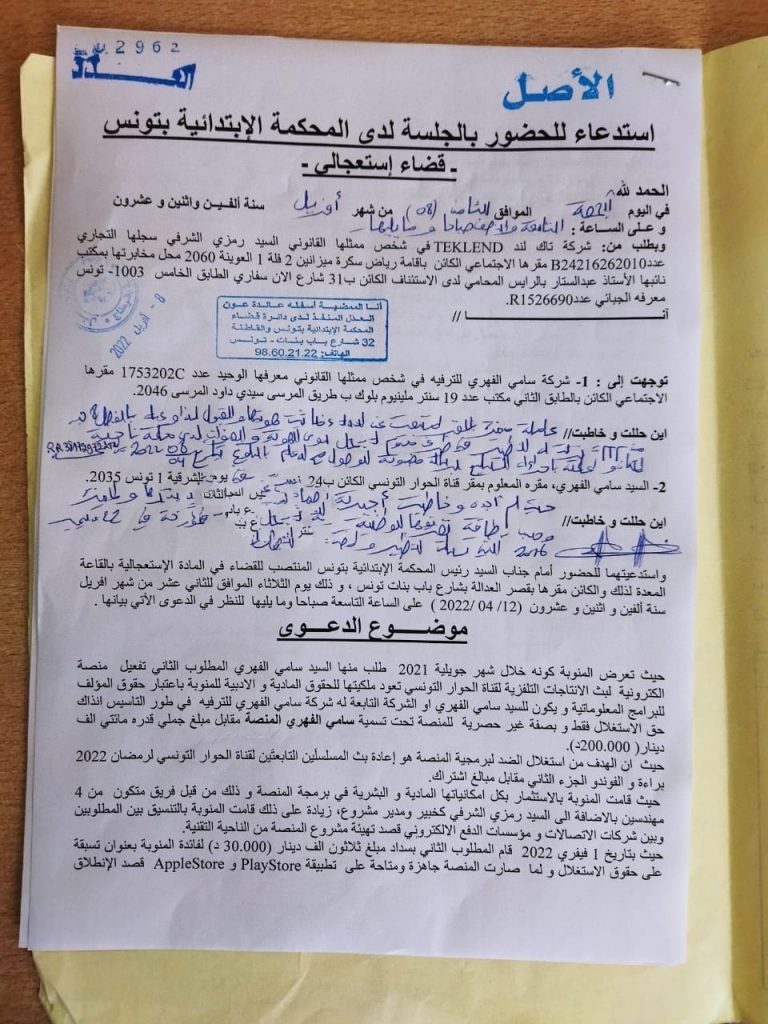 02962
العـدد
الأصل
استدعاء للحضور بالجلسة لدى المحكمة الإبتدائية بتونس
- قضاء إستعجالي -
الحمد لله
في اليوم الجمعة الموافق الثامن (08) من شهر أفريل سنة ألفين واثنين و عشرون
و على الساعة : التاسعة والنصف صباحا و ما يليها
وبطلب من: شركة تاك لند TEKLEND في شخص ممثلها القانوني السيد رمزي الشرفي سجلها التجاري
عدد B24216262010 مقرها الاجتماعي الكائن باقامة رياض سكرة ميزانين 2 فلة 1 العوينة 2060 محل مخابرتها بمكتب
نائبها الأستاذ عبدالستار بالرايس المحامي لدى الاستئناف الكائن ب31 شارع الان سفاري الطابق الخامس 1003- تونس
معرفه الجبائي عدد R1526690.
أنـــا //
أنا الممضية أسفله عائدة عون
العدل المنفذ لدى دائرة قضاء
المحكمة الإبتدائية بتونس والقاطنة
32 شارع باب بنات - تونس
الهاتف: 98.60.21.22
8 - أفريل 2022
توجهت إلى : 1- شركة سامي الفهري للترفيه في شخص ممثلها القانوني معرفها الوحيد عدد 1753202C مقرها
الاجتماعي الكائن بالطابق الثاني مكتب عدد 19 سنتر ملينيوم بلوك ب طريق المرسى سيدي داود المرسى 2046.
اين حللت و خاطبت//
2- السيد سامي الفهري، مقره المعلوم بمقر قناة الحوار التونسي الكائن ب24 الشرقية 1 تونس 2035.
اين حللت و خاطبت//
واستدعيتهما للحضور أمام جناب السيد رئيس المحكمة الإبتدائية بتونس المنتصب للقضاء في المادة الإستعجالية بالقاعة
المعدة لذلك والكائن مقرها بقصر العدالة بشارع باب بنات تونس ، و ذلك يوم الثلاثاء الموافق للثاني عشر من شهر افريل
سنة ألفين و اثنين و عشرون (12/ 04 /2022 ) على الساعة التاسعة صباحا وما يليها للنظر في الدعوى الآتي بيانها .
موضـــوع الدعـــوى
حيث تعرض المنوبة كونه خلال شهر جويلية 2021 طلب منها السيد سامي الفهري المطلوب الثاني تفعيل منصة
الكترونية لبث الانتاجات التلفزية لقناة الحوار التونسي تعود ملكيتها للحقوق المادية و الادبية للمنوبة باعتبار حقوق المؤلف
للبرامج المعلوماتية و يكون للسيد سامي الفهري او الشركة التابعة له شركة سامي الفهري للترفيه في طور التاسيس انذاك
حق الاستغلال فقط و بصفة غير حصرية للمنصة تحت تسمية سامي الفهري المنصة مقابل مبلغ جملي قدره مائتي الف
دينار( 200.000د).
حيث ان الهدف من استغلال الضد لبرمجية المنصة هو إعادة بث المسلسلَين التابعتَين لقناة الحوار التونسي لرمضان 2022
براءة و الفوندو الجزء الثاني مقابل مبالغ اشتراك.
حيث قامت المنوبة بالاستثمار بكل امكانياتها المادية و البشرية في برمجة المنصة و ذلك من قبل فريق متكون من 4
مهندسين بالاضافة الى السيد رمزي الشرفي كخبير ومدير مشروع، زيادة على ذلك قامت المنوبة بالتنسيق بين المطلوبين
وبين شركات الاتصالات و مؤسسات الدفع الالكتروني قصد تهيئة مشروع المنصة من الناحية التقنية.
حيث بتاريخ 1 فيفري 2022 قام المطلوب الثاني بسداد مبلغ ثلاثون الف دينار (30.000 د) لفائدة المنوبة بعنوان تسبقة
على حقوق الاستغلال و لما صارت المنصة جاهزة ومتاحة على تطبيقة PlayStore و AppleStore قصد الإنطلاق